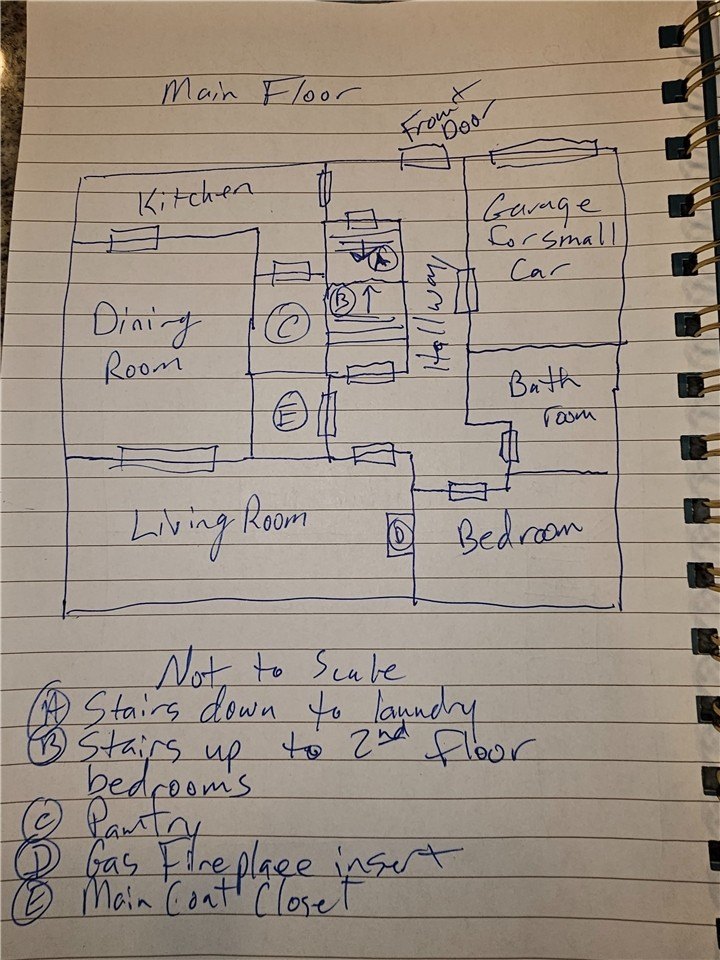 Main Floor
Front
Door
Kitchen
Garage
for small
Car
A
B
Hallway
C
Dining
Room
Bath
room
E
Living Room
D
Bedroom
Not to Scale
A Stairs down to laundry
B Stairs up to 2nd floor
bedrooms
C Pantry
D Gas Fireplace insert
E Main Coat Closet